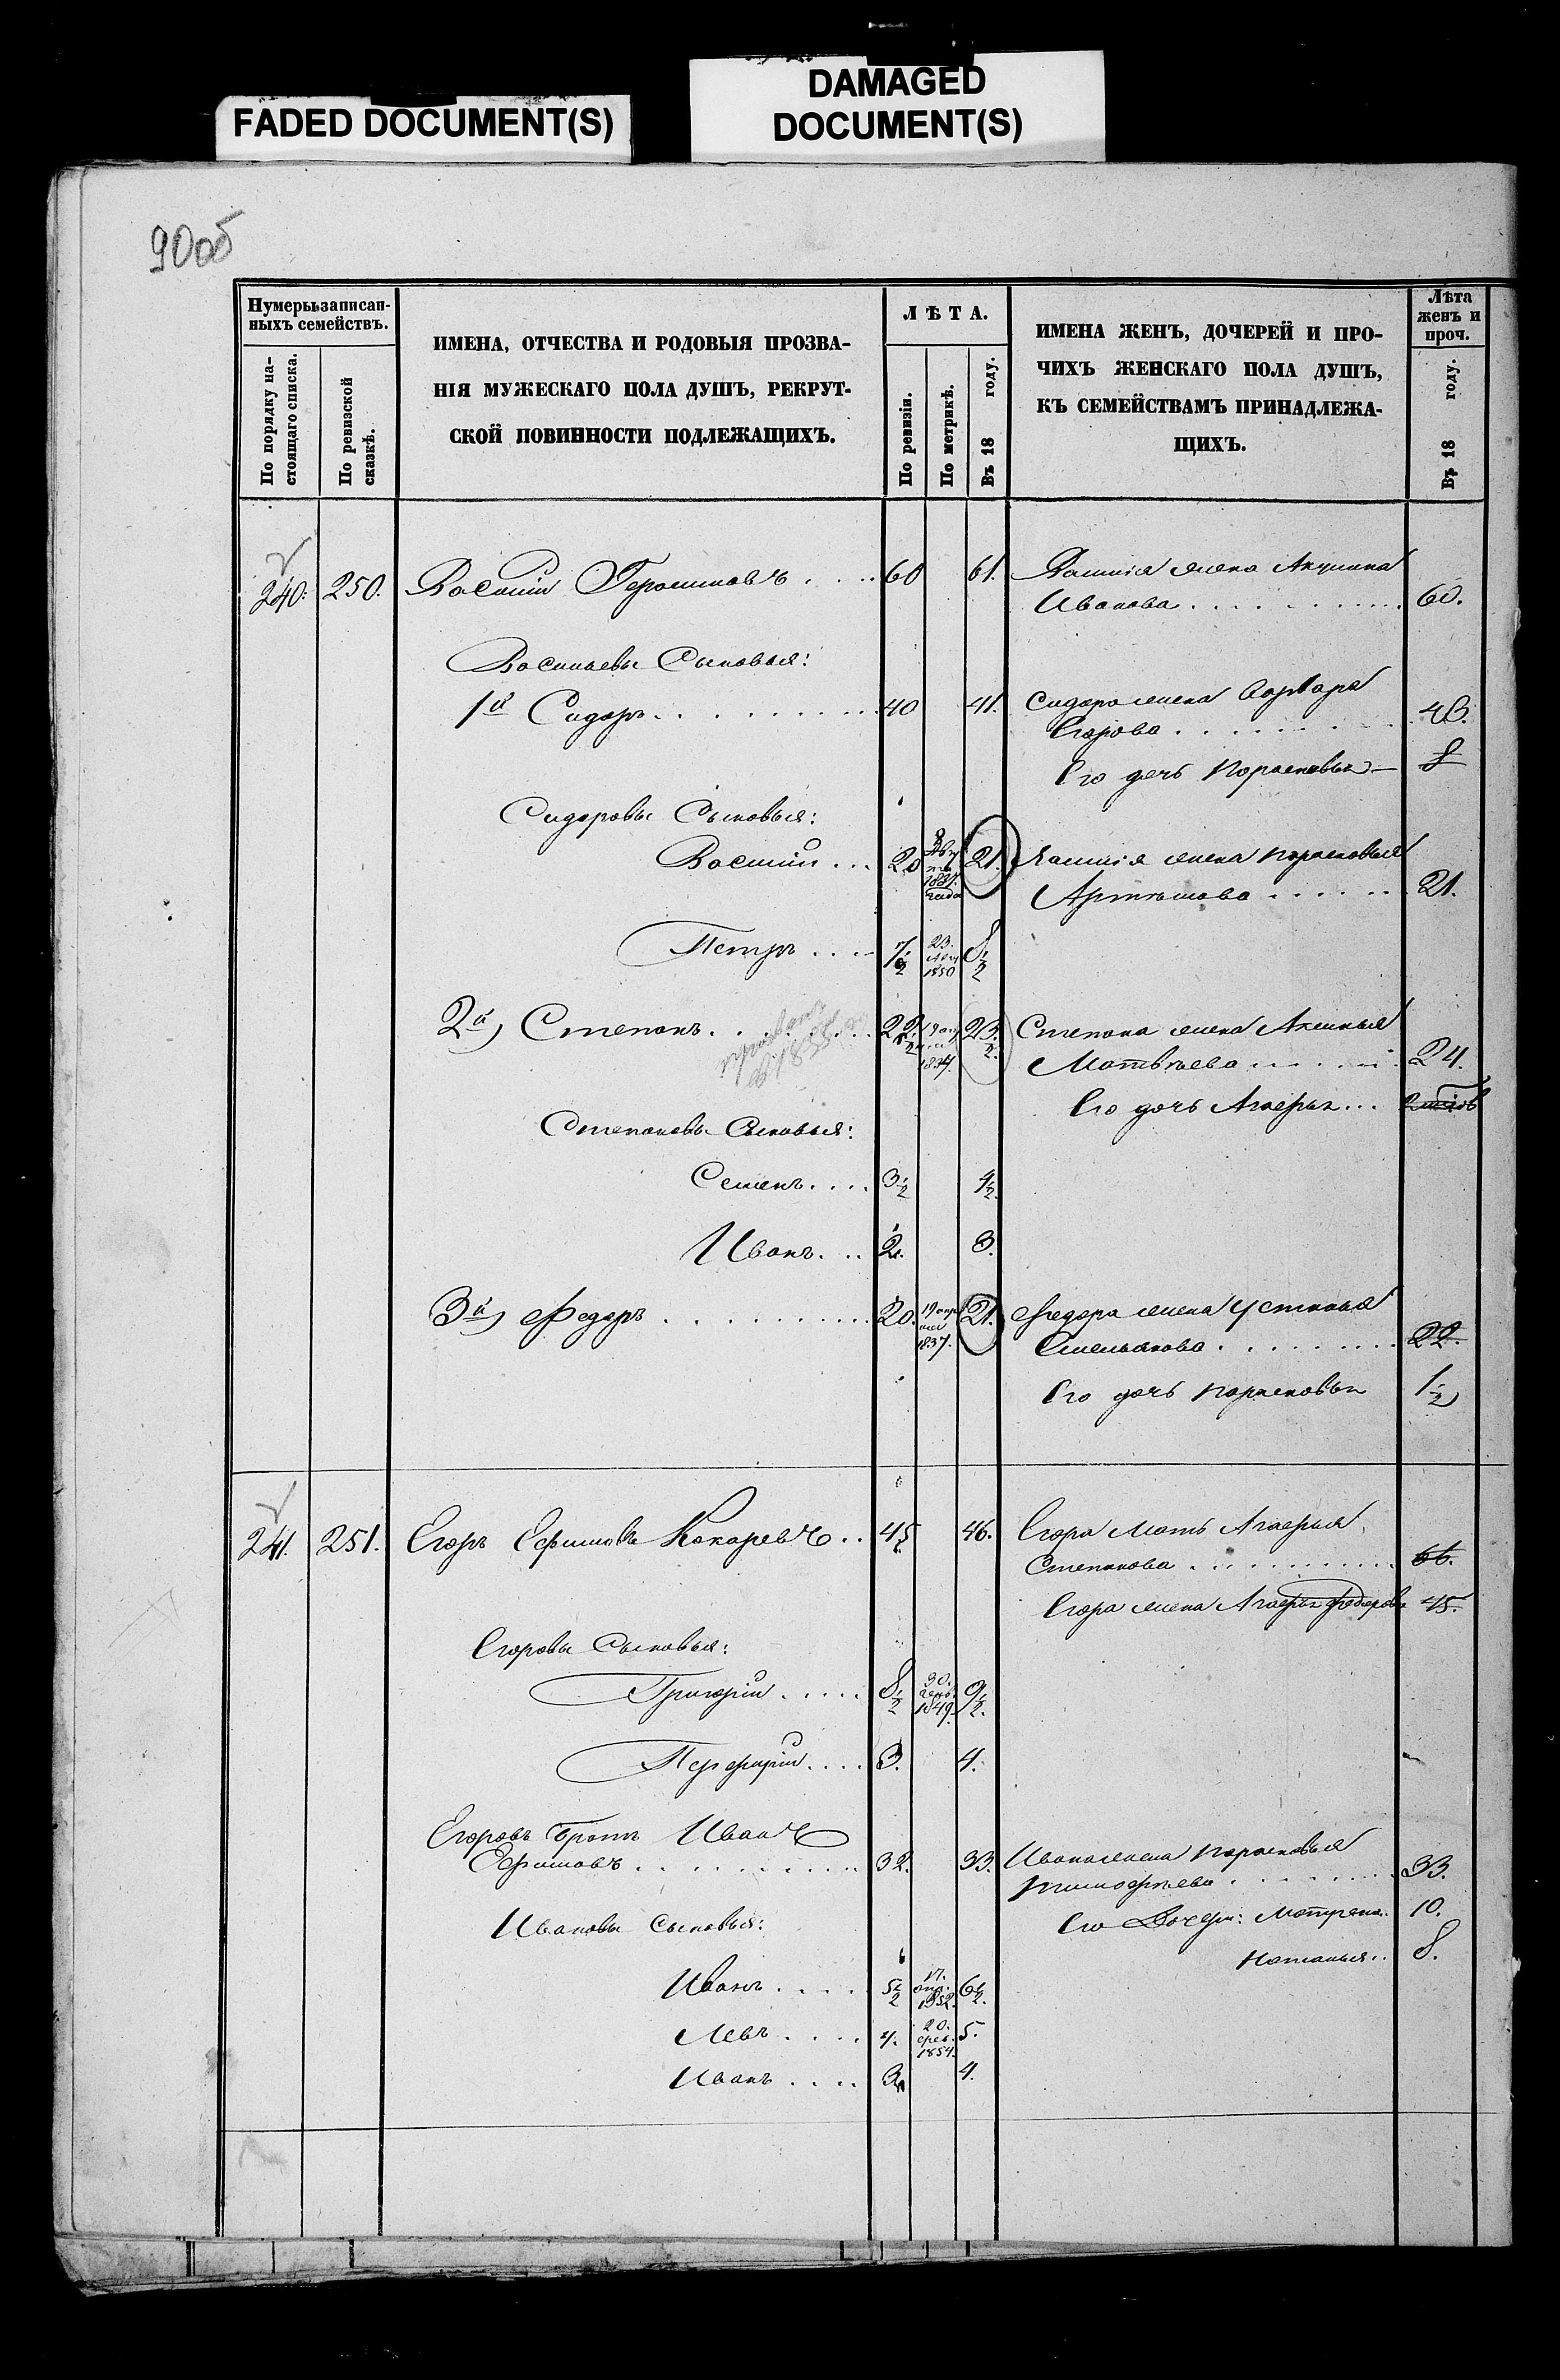 FADED DOCUMENT(S)
DAMAGED
DOCUMENT(S)
90об
Нумеры записан-
ныхъ семействъ.
По порядку на-
стоящаго списка.
По ревизской
сказкѣ.
ИМЕНА, ОТЧЕСТВА И РОДОВЫЯ ПРОЗВА-
НІЯ МУЖЕСКАГО ПОЛА ДУШЪ, РЕКРУТ-
СКОЙ ПОВИННОСТИ ПОДЛЕЖАЩИХЪ.
ЛѢТА.
По ревизіи.
По метрикѣ.
Въ 18 году.
ИМЕНА ЖЕНЪ, ДОЧЕРЕЙ И ПРО-
ЧИХЪ ЖЕНСКАГО ПОЛА ДУШЪ,
КЪ СЕМЕЙСТВАМЪ ПРИНАДЛЕЖА-
ЩИХЪ.
Лѣта
женъ и
проч.
Въ 18 году.
240. 250. Василій Герасимовъ . . . . 60 61. Василія жена Акулина
Иванова . . . . . . . . . . . 60.
Васильевы Сыновья:
1й Сидоръ . . . . . . . . . 40 41. Сидора жена Варвара
Егорова . . . . . . . . 43.
Его дочь Парасковья — 8
Сидоровы Сыновья:
Василій . . . 20 1837. года 21. Василія жена Парасковья
Артемова . . . . . . 21.
Петръ . . . . 7½ 23. 1850 8½
2й) Степанъ . . . . . . . 22½ 19 1834. 23½. Степана жена Аксинья
Матвѣева . . . . . . . 24.
въ 1855
Его дочь Агафья . . .
Степановы Сыновья:
Семенъ . . . . 3½ 4½.
Иванъ . . . 2. 3.
3й) Федоръ . . . . . . . . . . 20. 19 апреля 1837. 21. Федора жена Устинья
Емельянова . . . . . . . . . 22.
Его дочь Парасковья 1½
241. 251. Егоръ Ефимовъ Кокаревъ . . 45 46. Егора Мать Агафья
Степанова . . . . . . . . . . . 66.
Егора жена Агафья Федорова 45.
Егоровы Сыновья:
Григорій . . . . . 8½ 30. Генв. 1849. 9½.
Перфирій . . . . 3. 4.
Егоровъ братъ Иванъ
Ефимовъ . . . . . . . . . . 32. 33. Ивана жена Парасковья
Тимофѣева . . . . . . . . . 33.
Ивановы Сыновья:
Его Дочери: Матрена . 10.
Наталья . . 8.
Иванъ . . . . . 5½ 17. апр. 1852. 6½.
Левъ . . . . 4. 20. фев. 1854. 5.
Иванъ . . . . 3 4.